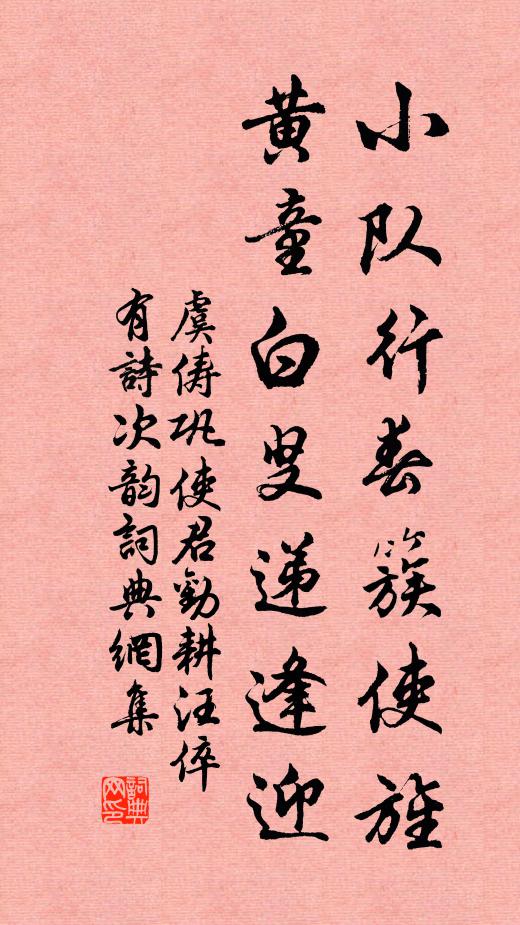 小队行春簇使旌
黄童白叟递逢迎
虞俦巩使君勸耕汪倅
有詩次韵詞典網集
詞典网印